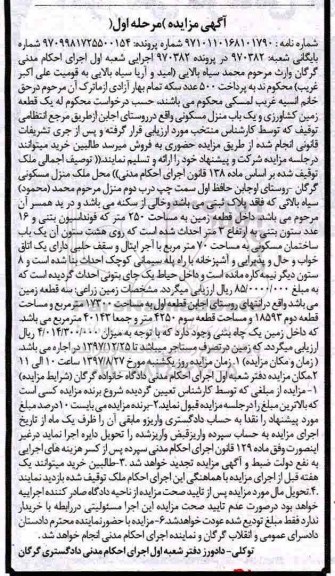 آگهی مزایده )مرحله اول(
شماره نامه : ۹۷۱۰۱۱۰۱۶۸۱۰۱۷۹۰ شماره پرونده: ۹۷۰۹۹۸۱۷۲۵۵۰۰۱۵۴ شماره
بایگانی شعبه: ۹۷۰۳۸۲ در پرونده ۹۷۰۳۸۲ اجرایی شعبه اول اجرای احکام مدنی
گرگان وارث مرحوم محمد سیاه بالایی (امید و آریا سیاه بالایی به قومیت علی اکبر
غریب) محکوم ند به پرداخت ۵۰۰ عدد سکه تمام بهار آزادی از ماترک آن مرحوم درحق
خانم انسیه غریب لمسکی محکوم می باشند، حسب درخواست محکوم له یک قطعه
زمین کشاورزی و یک باب منزل مسکونی واقع در روستای اجابن ازطریق مرجع انتظامی
توقیف که توسط کارشناس منتخب مورد ارزیابی قرار گرفته و پس از جری تشریفات
قانونی انجام شده از طریق مزایده حضوری به فروش میرسد طالبین خرید میتوانند
درجلسه مزایده شرکت و پیشنهاد خود را ارائه و تسلیم نمایند.(( توصیف اجمالی ملک
توقیف شده بر اساس ماده ۱۳۸ قانون اجرای احکام مدنی)) محل ملک منزل مسکونی
گرگان -روستای اوجابن حافظ اول سمت چپ درب دوم منزل مرحوم محمد (محمود)
سیاه بالائی که فقد پلاک ثبتی می باشد وخالی از سکنه می باشد و در ید همسر آن
مرحوم می باشد داخل قطعه زمین به مساحت ۲۵۰ متر که فونداسیون بتنی و ۱۶
عدد ستون بتنی به ارتفاع ۳ متر احداث شده است که روی هشت ستون آن یک باب
ساختمان مسکونی به مساحت ۷۰ متر مربع با آجر ایتال و سقف حلبی دارای یک اتاق
خواب و حال و پذیرایی و آشپزخانه با راه پله سیمانی کوچک احداث بنا شده است و ۸
ستون دیگر نیمه کاره مانده است و داخل حیاط یک چای بتونی احداث گردیده است که
به مبلغ ۸۵/۰۰۰/۰۰۰ ریال ارزیابی میگردد. مشخصات زمین زراعی: سه قطعه زمین
می باشد واقع در انتهای روستای اجابن قطعه اول به مساحت ۱۷۳۰۰ مترمربع و مساحت
قطعه دوم ۱۸۵۹۳ و مساحت قطعه سوم ۴۲۵۰ متر و جمعا ۴۰۱۴۳ مترمربع می باشد.
که داخل زمین یک چاه بتنی وجود دارد که با توجه به میزان ۴/۰۱۴/۳۰۰/۰۰۰ ریال
ارزیابی میگردد که زمین در تصرف مستاجر میباشد تا ۱۳۹۷/۱۲/۲۵ در اجاره می باشد.
( زمان و مکان مزایده) ۱. زمان مزایده روز یکشنبه مورخ ۱۳۹۷/۸/۲۷ ساعت ۱۰ الی ۱۱
۲مکان مزایده دفتر شعبه اول اجرای احکام مدنی دادگاه خانواده گرگان (شرایط مزایده)
۱- مزایده از مبلغی که توسط کارشناس تعیین گردیده شروع برنده مزایده کسی است
که بالاترین مبلغ را درجلسه مزایده قبول نماید.۲-برنده مزایده می بایست ۱۰درصد مبلغ
مورد پیشنهاد را نقدا به حساب دادگستری واریز و مابقی آن را ظرف یک ماه از تاریخ
اجرای مزایده به حساب سپرده واریز و فیش واریز شده را تحویل دایره اجرا نماید درغیر
اینصورت وفق ماده ۱۲۹ قانون اجرای احکام مدنی سپرده پس از کسر هزینه های اجرایی
به نفع دولت ضبط و آگهی مزایده تجدید خواهد شد .۳-طالبین خرید میتوانند یک
هفته قبل از اجرای مزایده با هماهنگی این اجرای احکام ملک توقیف شده بازدید نمایند
.۴. تحویل مال مورد مزایده پس از تایید صحت مزایده از ناحیه دادگاه صادر کننده اجراییه
خواهد بود درصورت عدم تایید صحت مزایده این اجرا مسئولیتی دررابطه با خریدار
ندارد فقط مبلغ تودیع شده عودت خواهدشد.۶- مزایده با حضور نماینده محترم دادستان
دادسرای عمومی و انقلاب گرگان و نماینده اجرای احکام مدنی انجام خواهد شد.
توکلی- دادورز دفتر شعبه اول اجرای احکام مدنی دادگستری گرگان